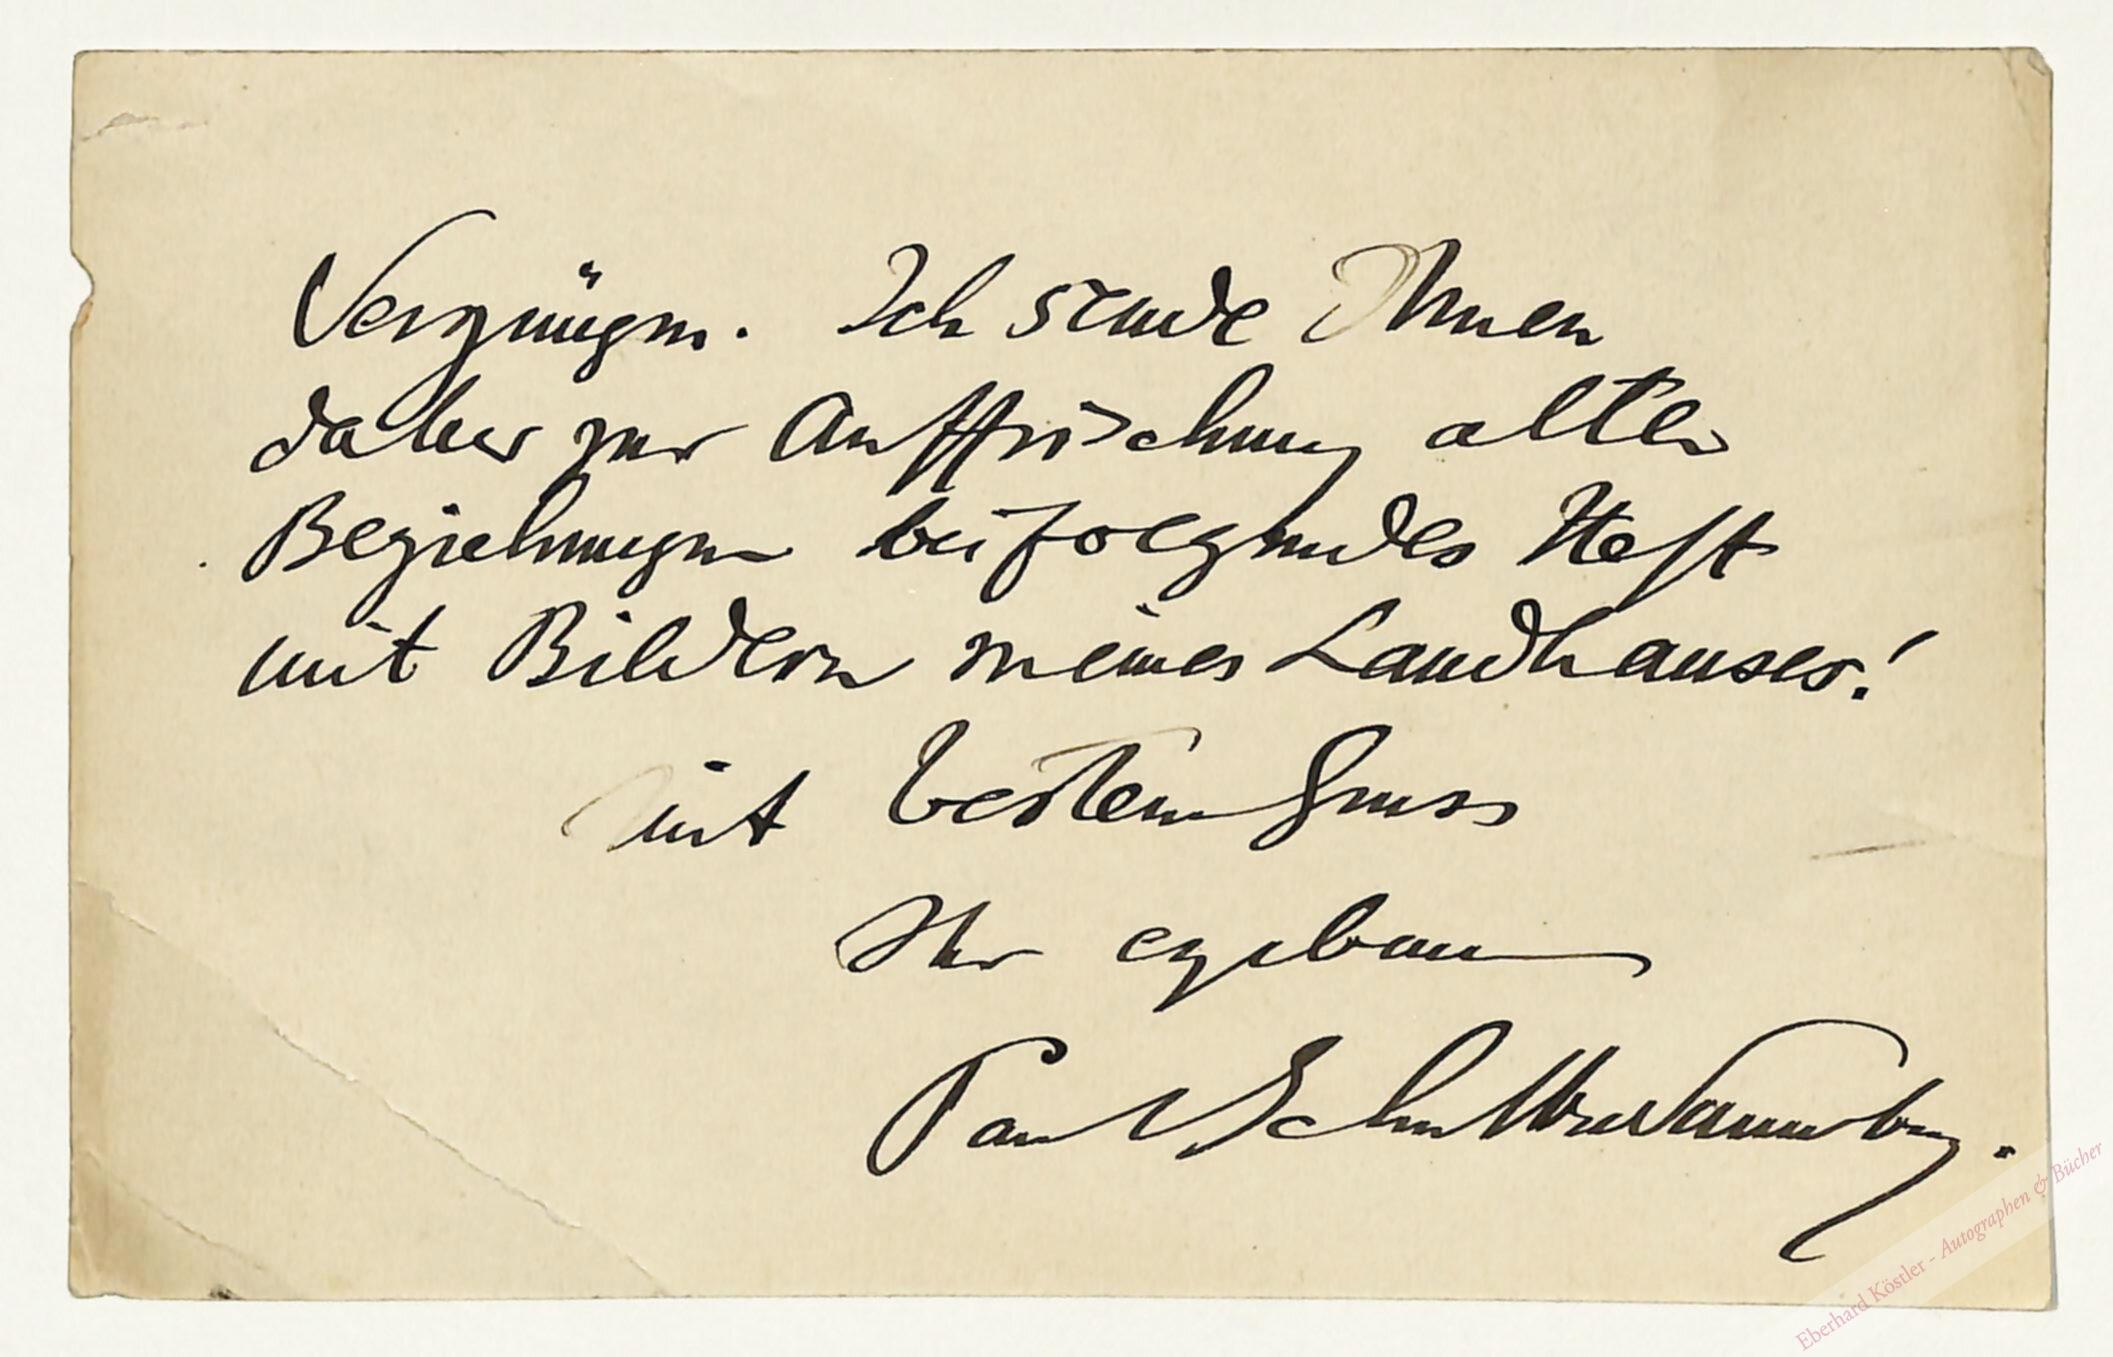 Vergnügen. Ich sende Ihnen
daher zur Auffrischung alter
Beziehungen beifolgendes Heft
mit Bildern meines Landhauses!
Mit bestem Gruss
Ihr ergebener
Paul Schultze Naumburg.
Eberhard Köstler - Autographen & Bücher